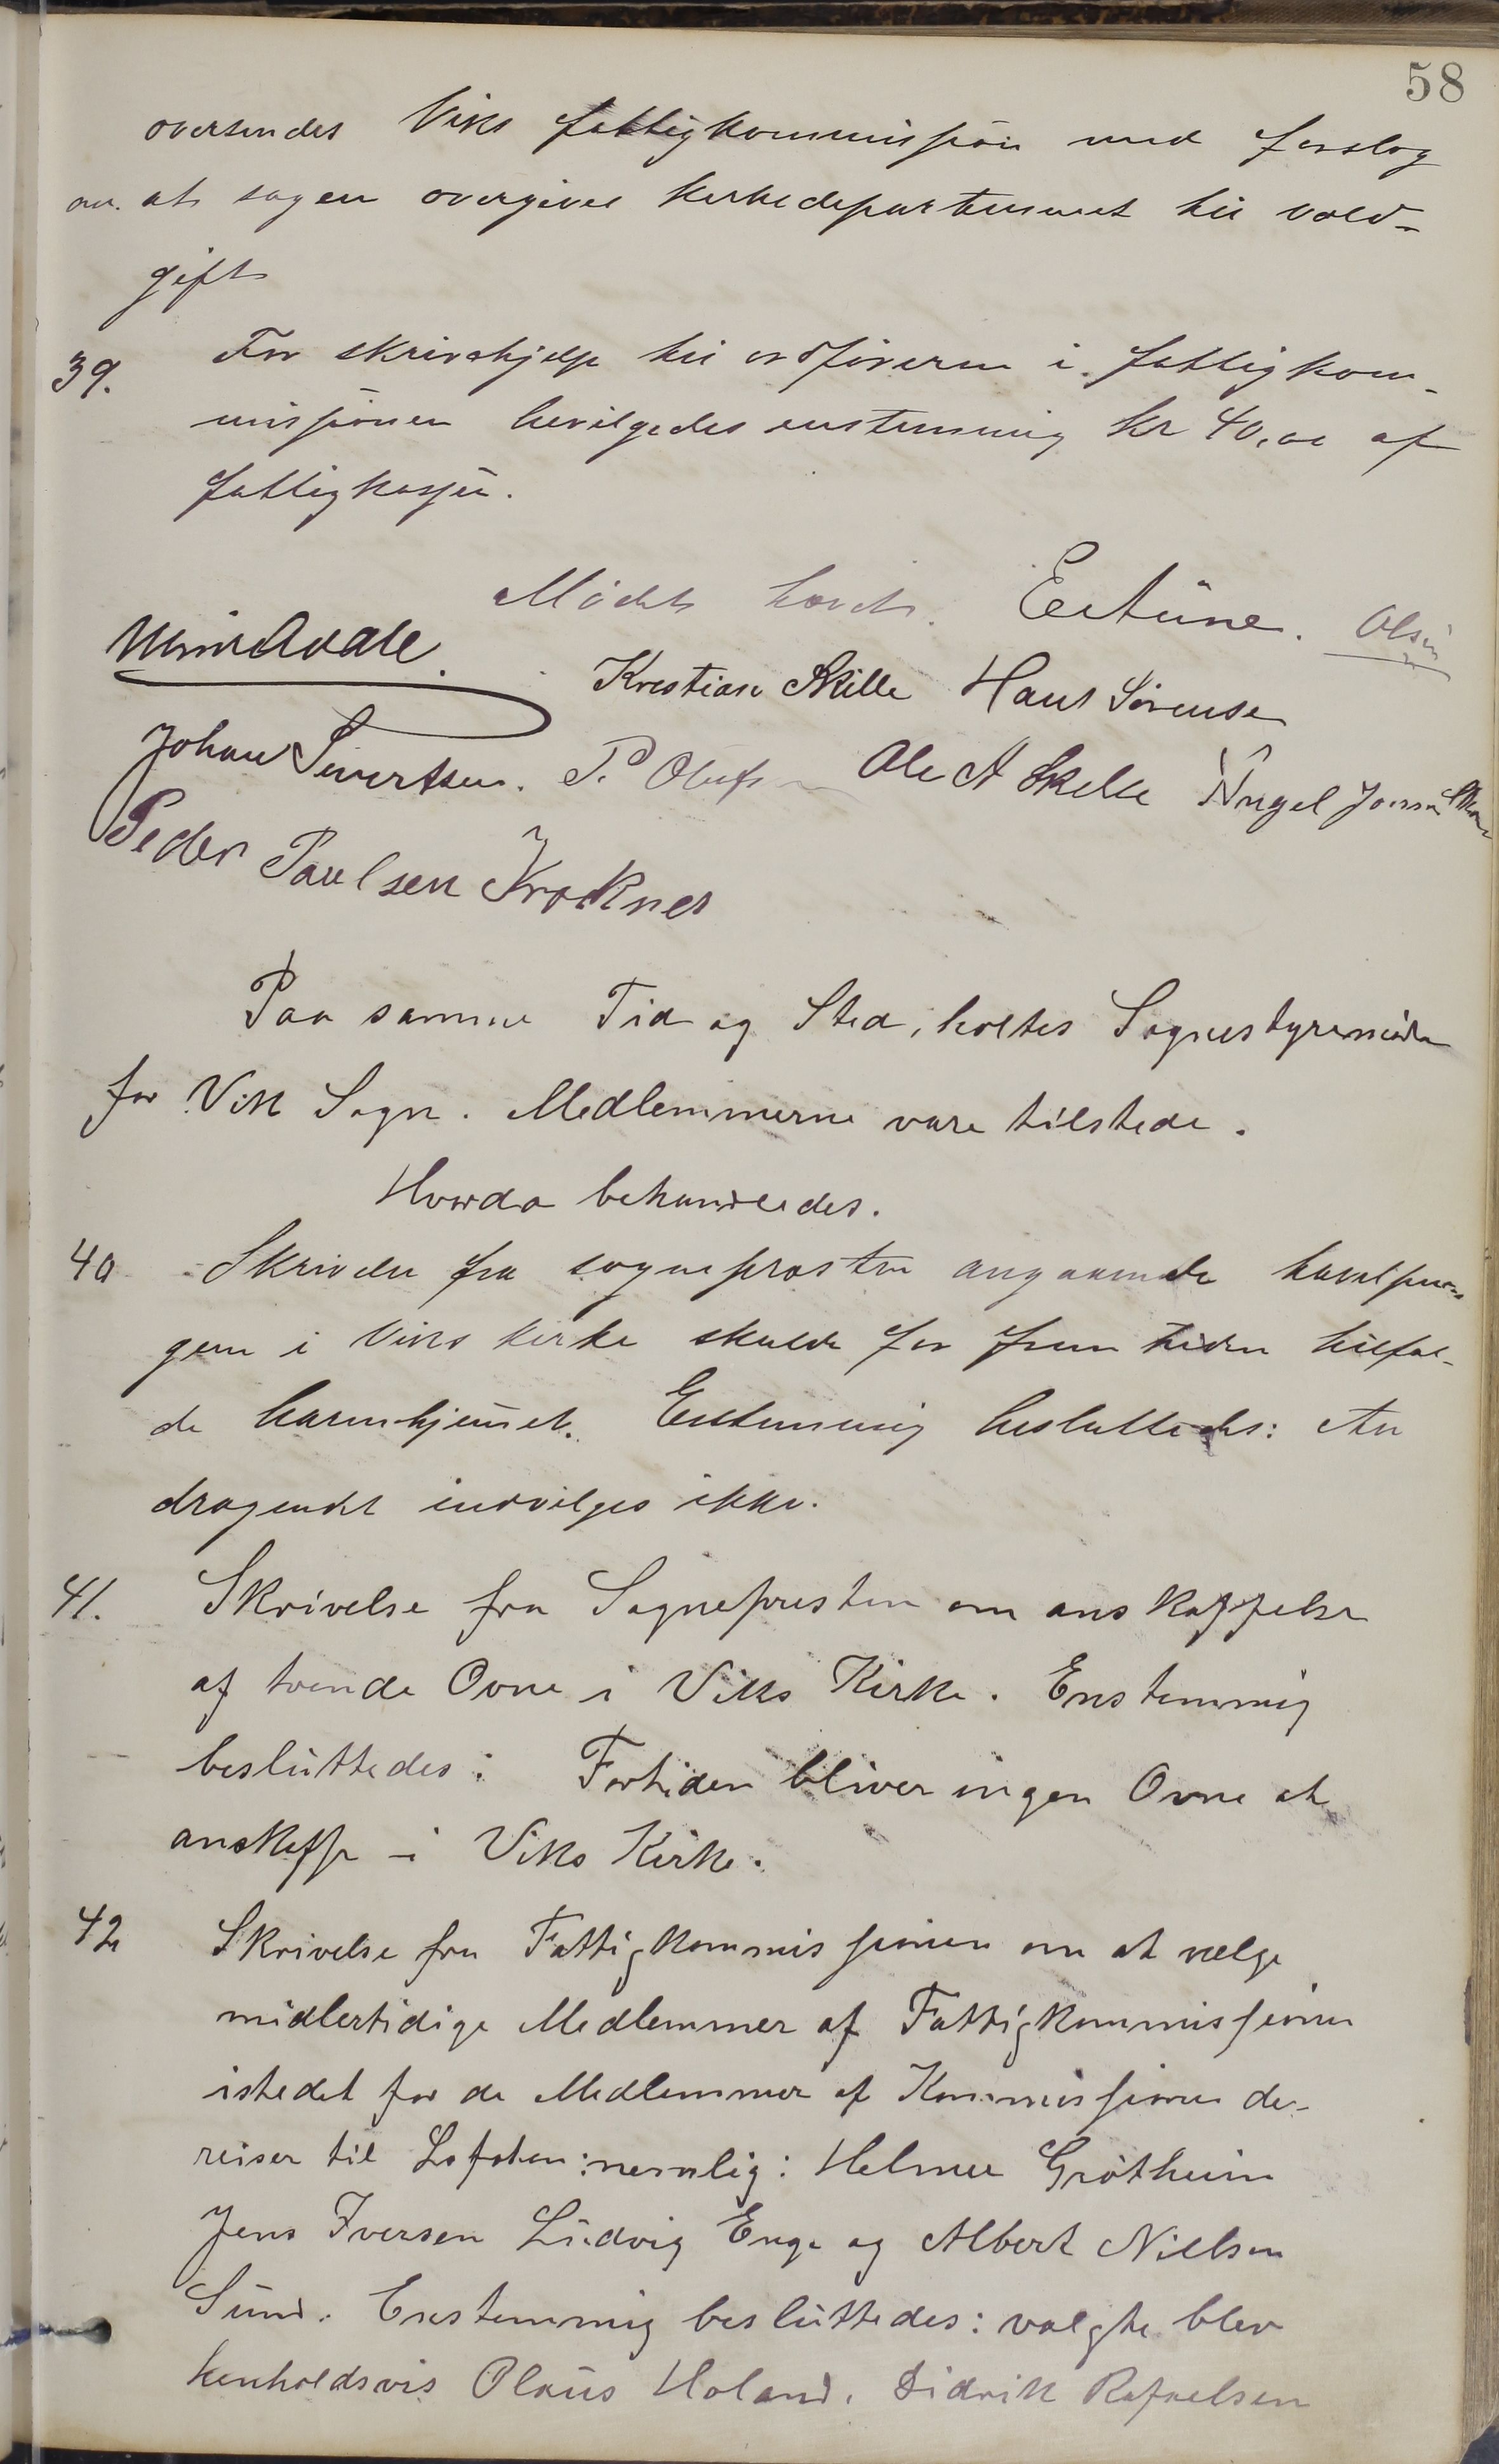 58
oversendes Viks fattigkommission med forslag
om. at sagen overgives kirkedepartementet til vold-
gift
39. For skrivehjelp til ordføreren i fattigkom-
missionen bevilgedes enstemmig kr 40,00 af
fattigkassen.
Mødet hævet. Olsen
Kristian Skille Hans Sørensen
Johan Sivertsen. P. Olufsen Ole A Skille
Peder Paulsen Kroknes
Paa samme Tid og Sted, holtes Sognestyremøde
for Vik Sogn. Medlemmerne vare tilstede.
Hvorda behandledes.
40 Skrivelse fra sogneprosten angaaende
gene i Viks kirke skulde for fremtiden tilfal-
de barnehjemet. Enstemmig besluttedes: An
dragendet indvilges ikke.
41. Skrivelse fra Sognepresten om anskaffelse
af tvende Ovne i Viks Kirke. Enstemmig
besluttedes: Fortiden bliver ingen Ovne at
anskaffe i Viks Kirke.
42 Skrivelse fra Fattigkommissionen om at vælge
midlertidige Medlemmer af Fattigkommissionen
istedet for de Medlemmer af Kommissionen der
reiser til Lofoten: nemlig: Helmer Grøtheim
Jens Iversen Ludvig Enge og Albert Nielsen
Sund. Enstemmig besluttedes: valgte blev
henholdsvis Olaus Holand, Didrik Rafaelsen